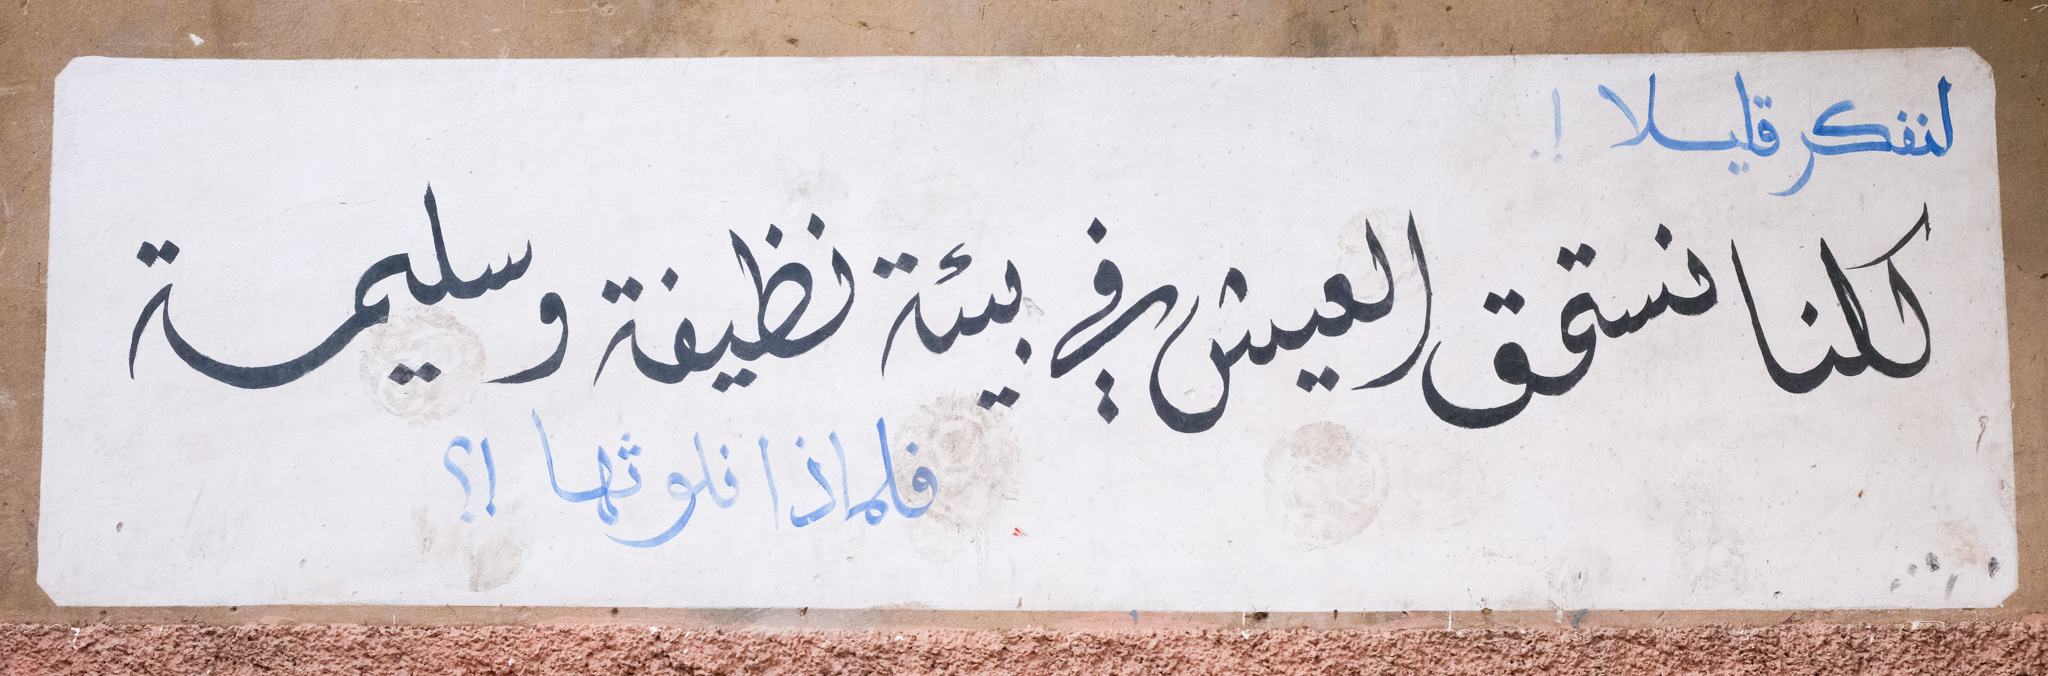 لنفكر قليلا !
كلنا نستحق العيش في بيئة نظيفة وسليمة
فلماذا نلوثها !؟